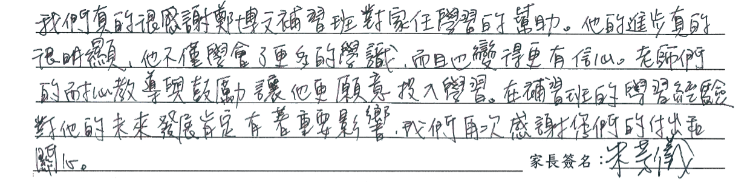 我們真的很感謝鄭博文補習班對家任學習的幫助。他的進步真的
很明顯,他不僅學會了更多的學識,而且也變得更有信心。老師們
的耐心教導與鼓勵讓他更願意投入學習。在補習班的學習經驗
對他的未來發展肯定有著重要影響,我們再次感謝您們的付出和
關心。
家長簽名:朱芸儀